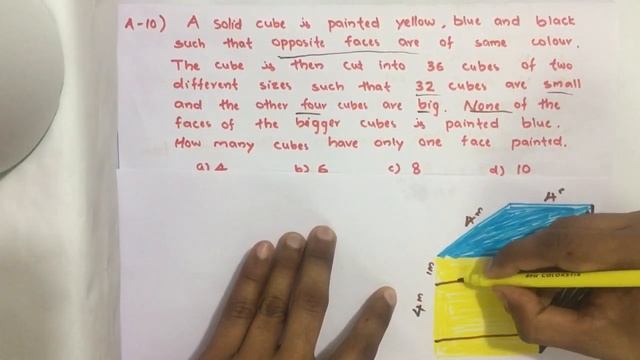 A-10) A solid cube is painted yellow, blue and black
such that opposite faces are of same colour.
The cube is then cut into 36 cubes of two
different sizes such that 32 cubes are small
and the other four cubes are big. None of the
faces of the bigger cubes is painted blue.
How many cubes have only one face painted.
a) 4 b) 6 c) 8 d) 10
4m 4m
1m
4m